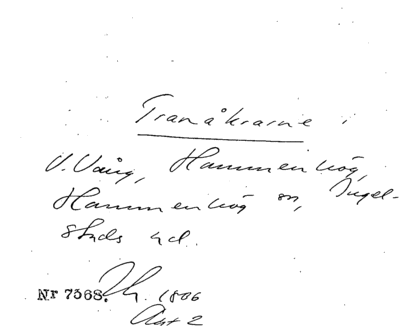 Tranåkrarne i
V. Vång, Hammenhög,
Hammenhög sn, Ingel-
stads hd.
Nr 7568. 1806
Akt 2